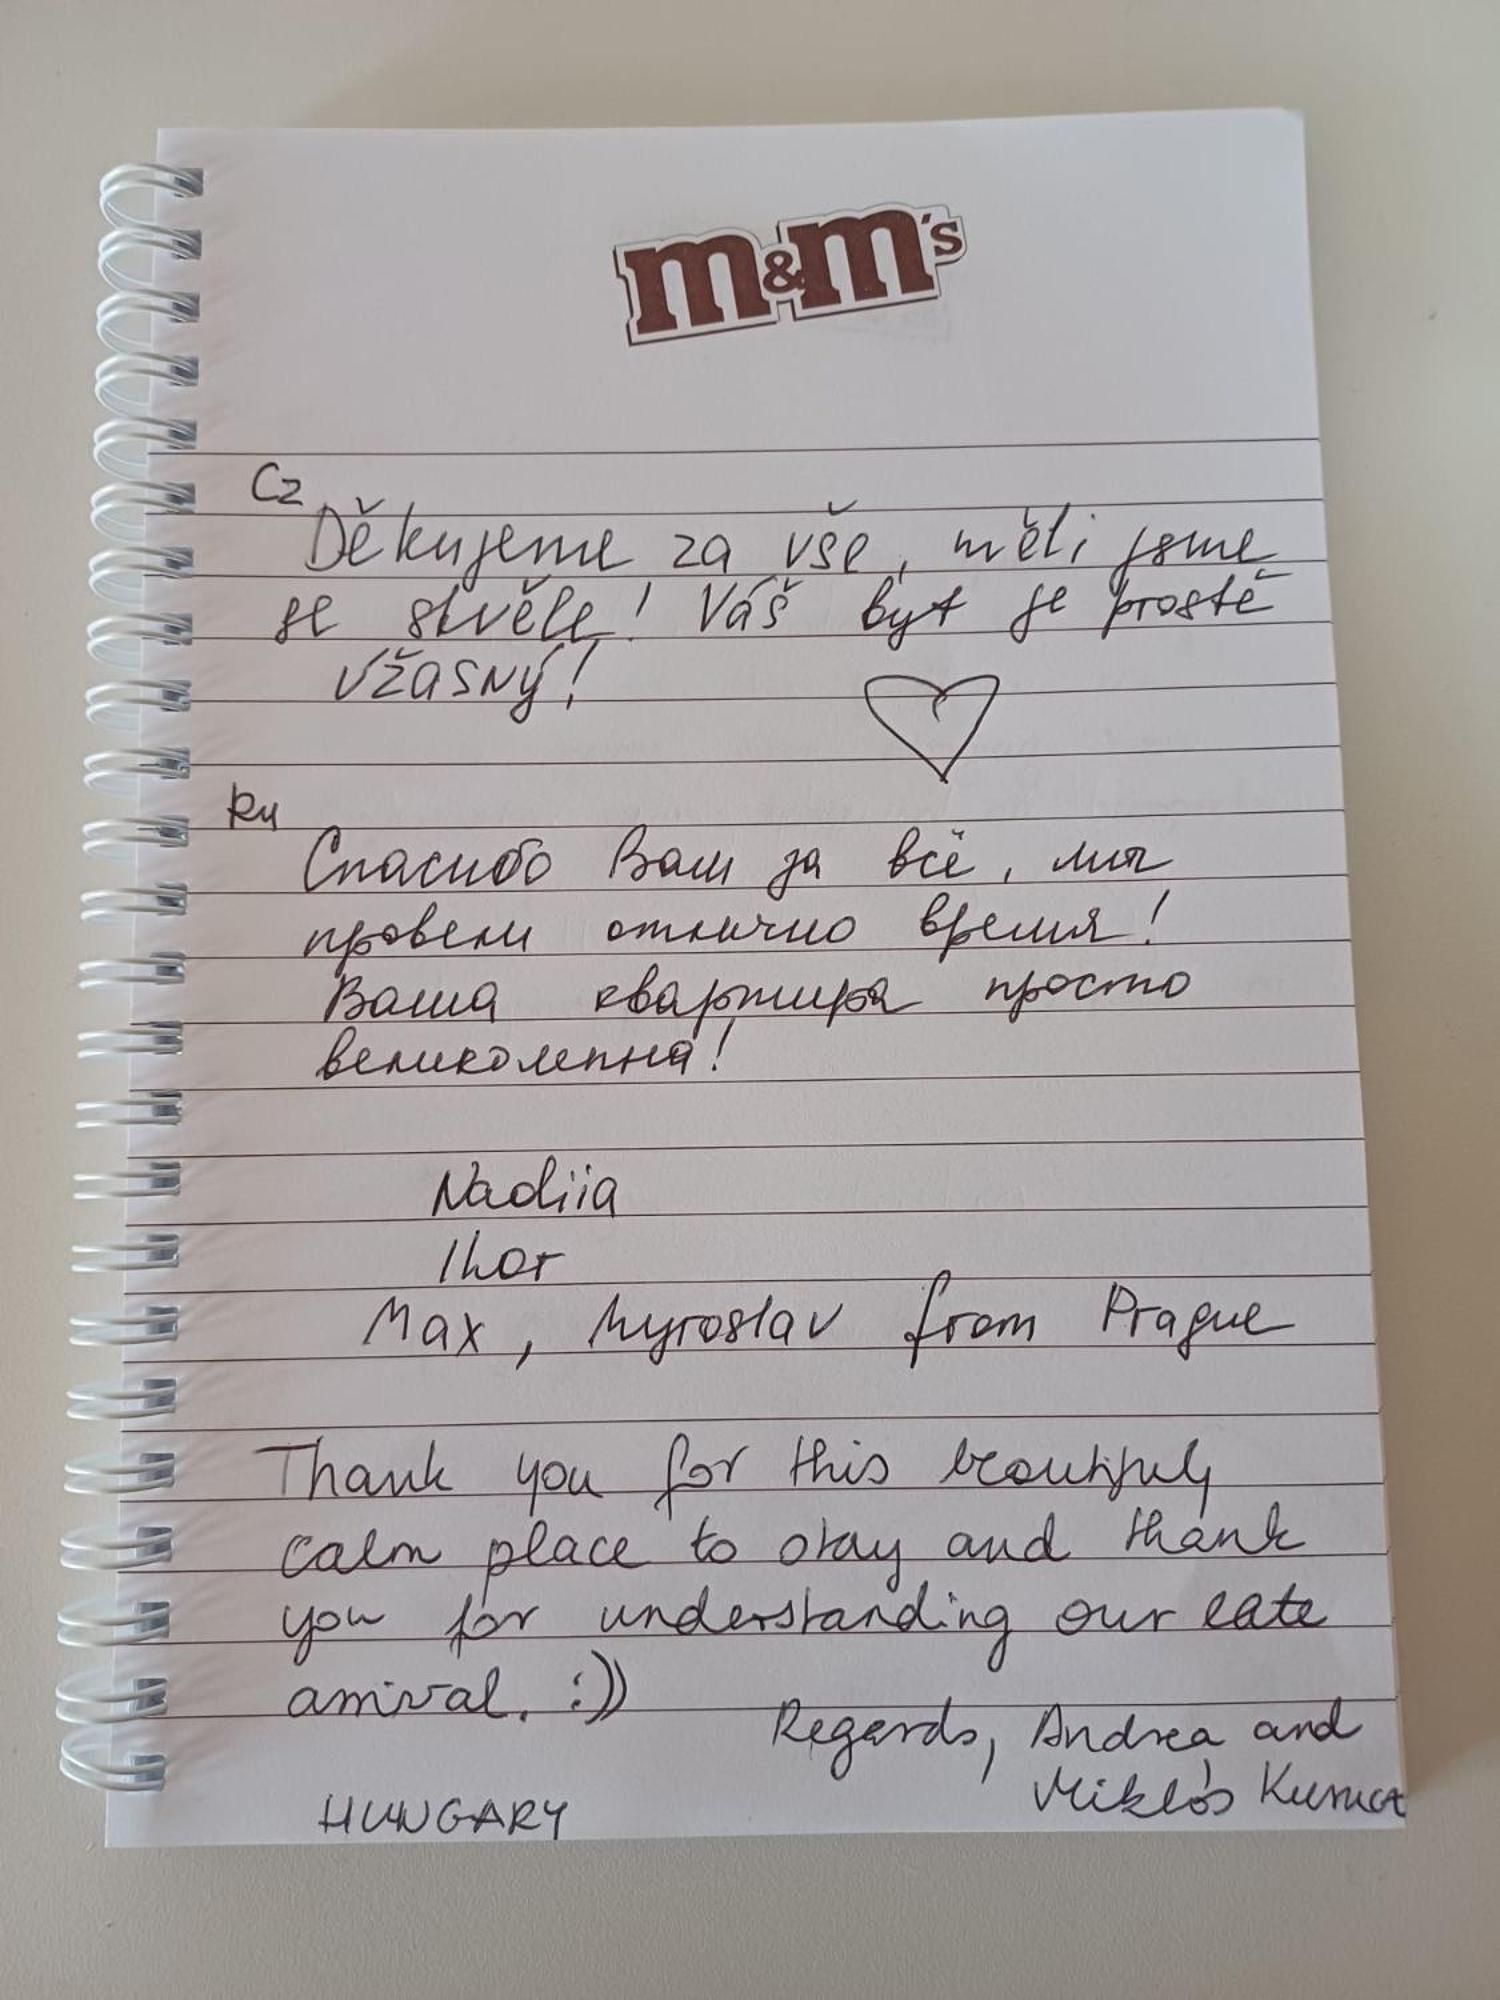 m&m's
Cz
Děkujeme za vše, měli jsme
se skvěle! Váš byt je prostě
úžasný!
Ru
Спасибо Вам за всё, мы
провели отлично время!
Ваша квартира просто
великолепна!
Nadiia
Ihor
Max, Myroslav from Prague
Thank you for this beautifuly
calm place to stay and thank
you for understanding our late
arrival. :))
Regards, Andrea and
Miklós
HUNGARY